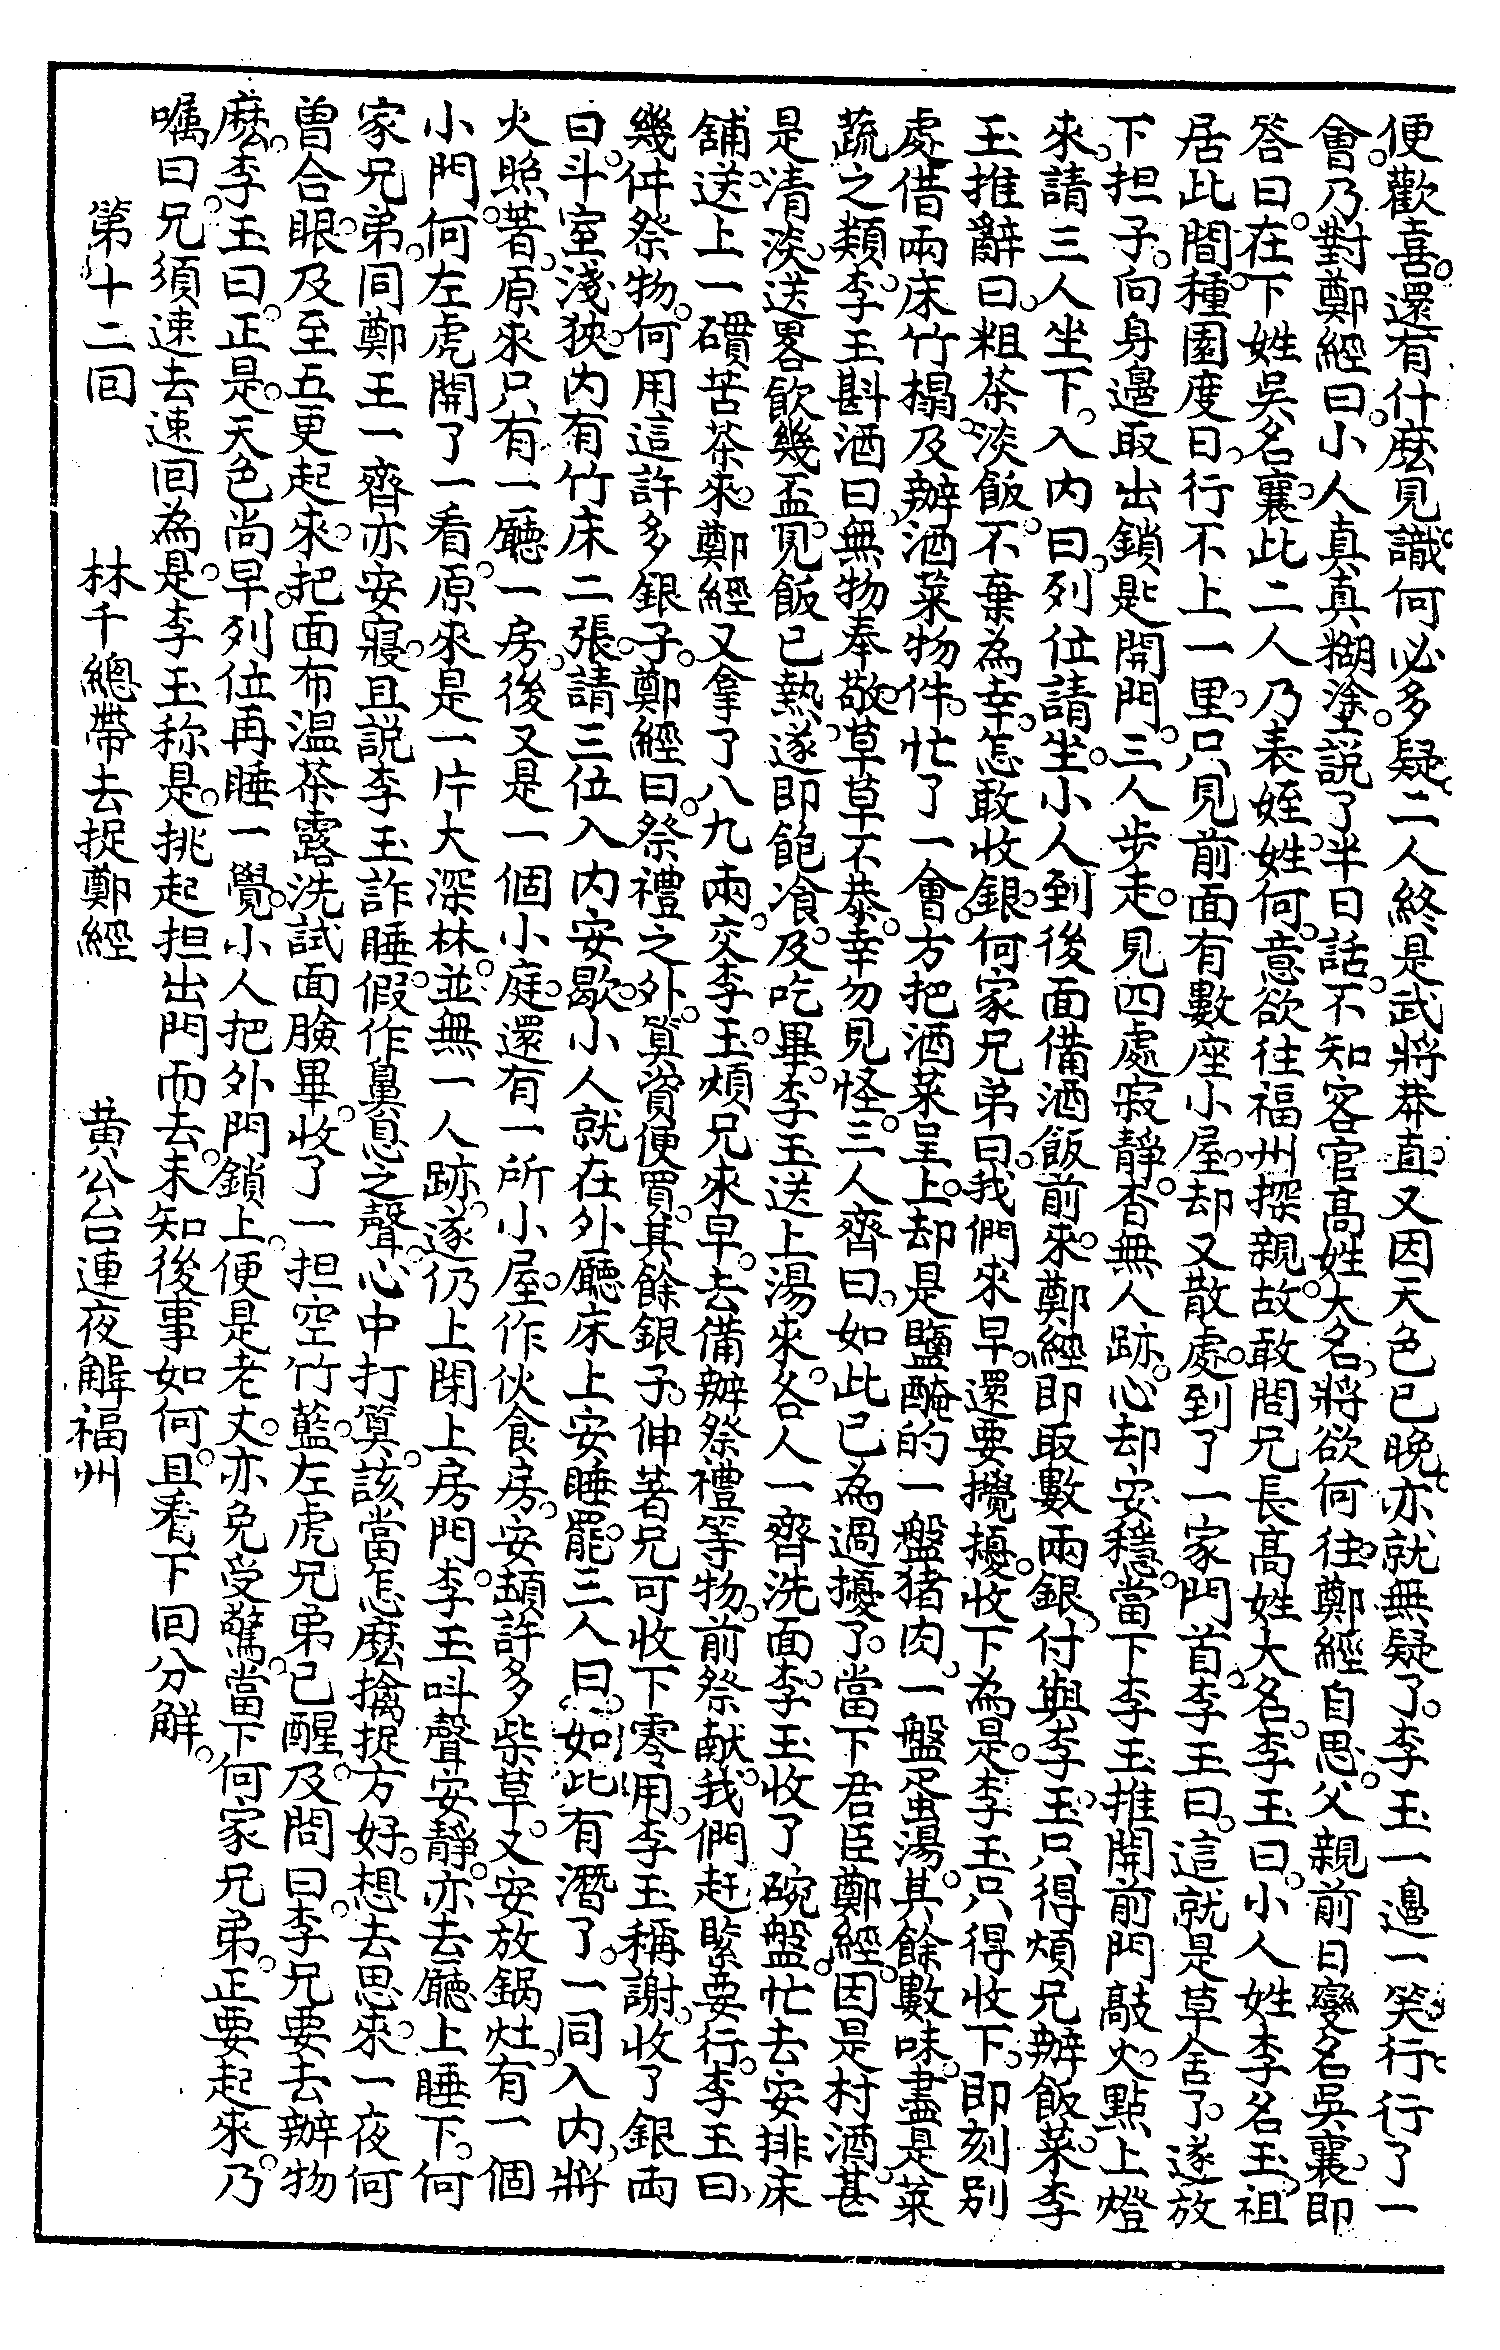 便歡喜。還有什麽見識。何必多疑。二人終是武將莽直。又因天色已晚。亦就無疑了。李玉一邊一笑。行。行了一
會。乃對鄭經曰。小人真真糊塗。說了半日話。不知客官高姓大名。將欲何往。鄭經自思。父親前日變名吳襄。即
答曰。在下姓吳名襄。此二人乃表姪姓何。意欲往福州探親。故敢問兄長高姓大名。李玉曰。小人姓李名玉。祖
居此間。種園度日。行不上一里。只見前面有數座小屋。却又散處。到了一家門首。李玉曰。這就是草舍了。遂放
下担子。向身邊取出鎖匙開門。三人步走。見四處寂靜。杳無人跡。心却安穩。當下李玉推開前門。敲火。點上燈
來。請三人坐下。入內曰。列位請坐。小人到後面備酒飯前來。鄭經即取數兩銀。付與李玉。只得煩兄辦飯菜。李
玉推辭曰。粗茶淡飯。不棄為幸。怎敢收銀。何家兄弟曰。我們來早。還要攪擾。收下為是。李玉只得收下。即刻別
處借兩床竹榻。及辦酒菜物件。忙了一會。方把酒菜呈上。却是鹽醃的一盤猪肉。一盤蛋湯。其餘數味。盡是菜
蔬之類。李玉斟酒曰。無物奉敬。草草不恭。幸勿見怪。三人齊曰。如此已為過擾了。當下君臣鄭經。因是村酒。甚
是清淡。送畧飲幾盃。見飯已熱。遂即飽飡。及吃畢。李玉送上湯來。各人一齊洗面。李玉收了碗盤。忙去安排床
舖。送上一礶苦茶來。鄭經又拿了八九兩。交李玉。煩兄來早。去備辦祭禮等物。前祭献。我們赶緊要行。李玉曰。
幾件祭物。何用這許多銀子。鄭經曰。祭禮之外。算資便買。其餘銀子。伸著兄可收下零用。李玉稱謝。收了銀両
曰。斗室淺狹。內有竹床二張。請三位入內安歇。小人就在外廳床上安睡罷。三人曰。如此有潛了。一同入內。將
火照著。原來只有一廳一房。後又是一個小庭。還有一所小屋。作伙食房。安頓許多柴草。又安放鍋灶。有一個
小門。何左虎開了一看。原來是一片大深林。並無一人跡。遂仍上閉上房門。李玉呌聲安靜。亦去廳上睡下。何
家兄弟。同鄭王一齊亦安寢。且説李玉詐睡。假作鼻息之聲。心中打算。該當怎麽擒捉方好。想去思來。一夜何
曾合眼。及至五更起來。把面布温茶露洗試面臉畢。收了一担空竹藍。左虎兄弟已醒。及問曰。李兄要去辦物
麽。李玉曰。正是。天色尚早。列位再睡一覺。小人把外門鎖上。便是老丈。亦免受驚。當下何家兄弟。正要起來。乃
嘱曰。兄須速去速回為是。李玉称是。挑起担出門而去。未知後事如何。且看下回分解。
第十二回　林千總帶去捉鄭經　黃公台連夜解福州